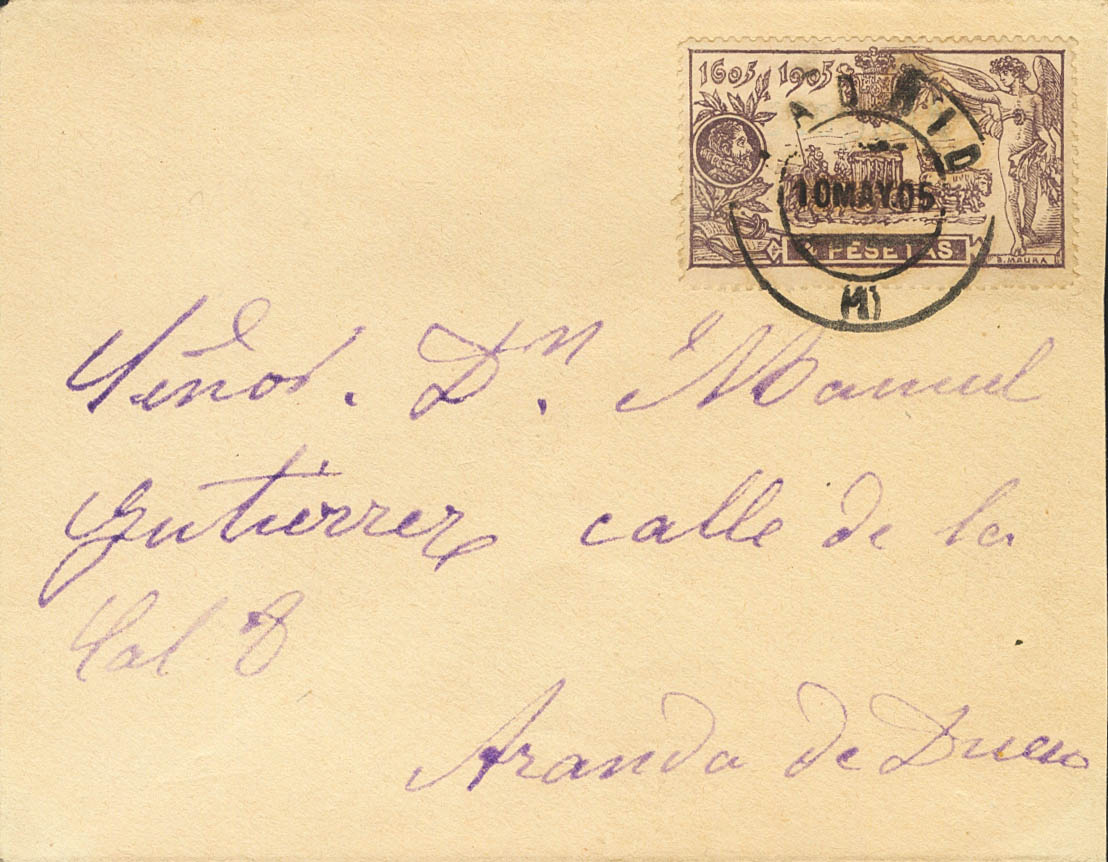 1605 1905
MADRID
10MAY05
4 PESETAS
B. MAURA
(1)
Señor. Dn. Manuel
Gutierrez calle de la
Sal 8
Aranda de Duero